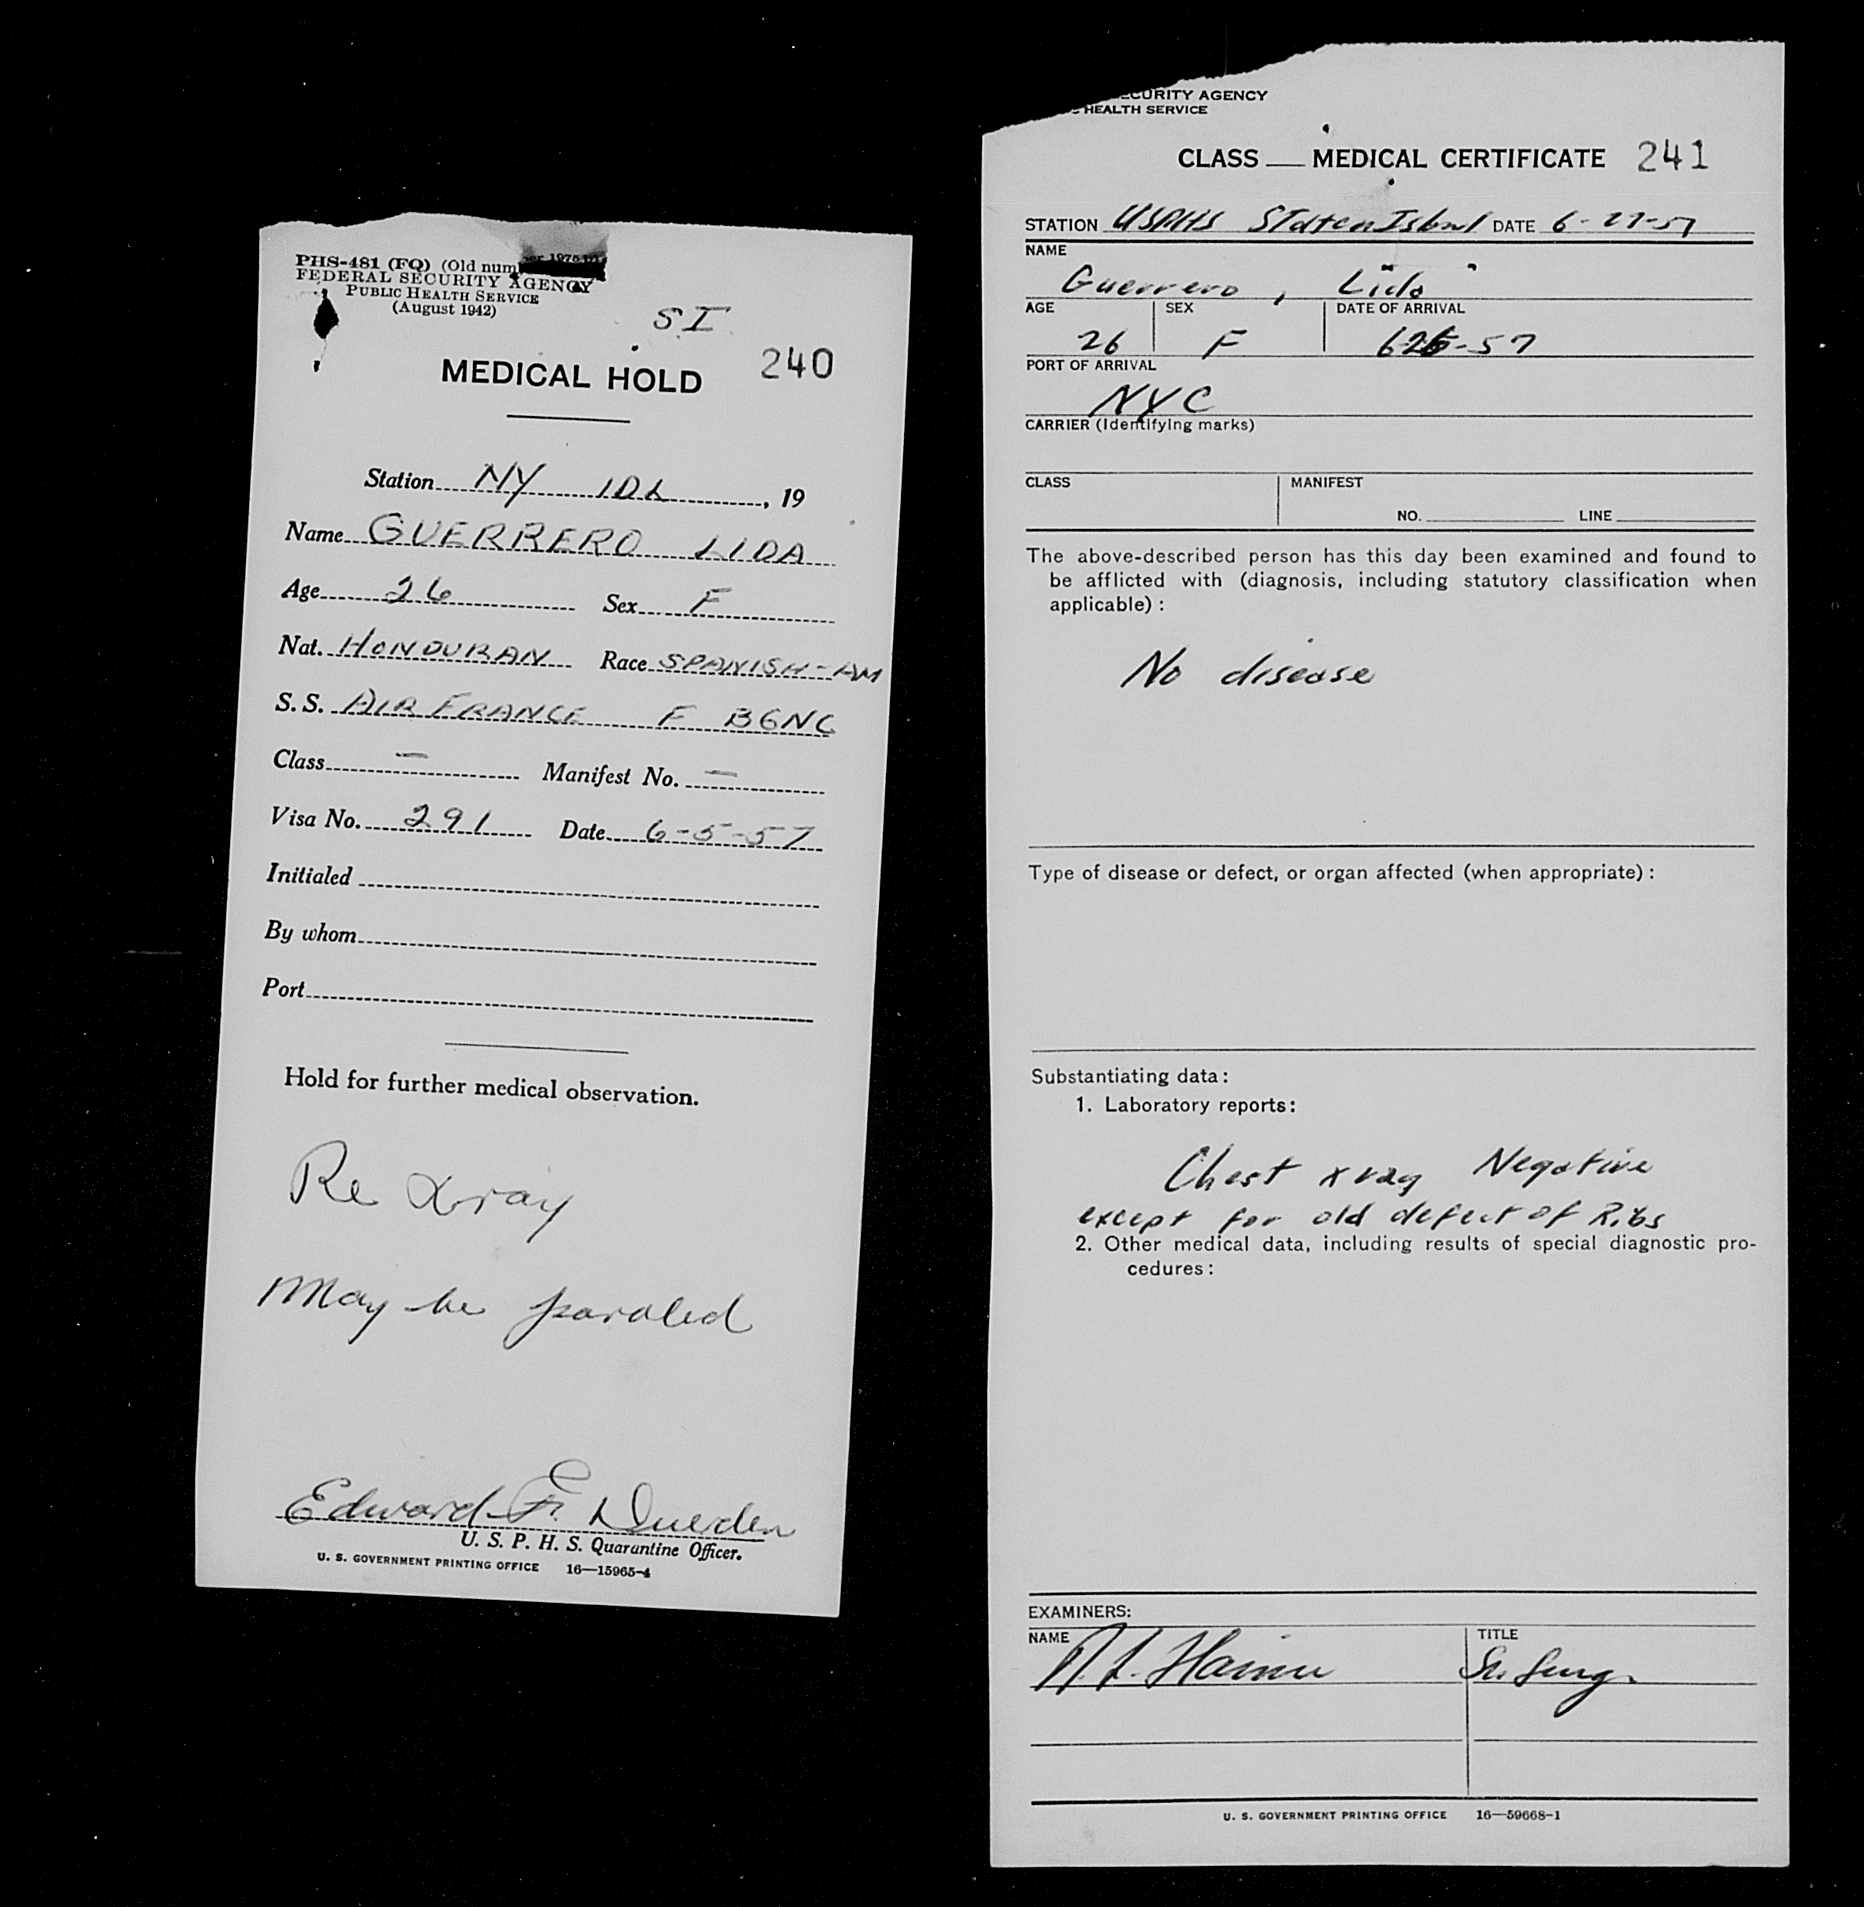 PHS-481 (FQ) (Old num
FEDERAL SECURITY AGENCY
PUBLIC HEALTH SERVICE
(August 1942)
SI
MEDICAL HOLD 240
Station NY IDL , 19
Name GUERRERO LIDA
Age 26 Sex F
Nat. HONDURAN Race SPANISH-AM
S. S. AIR FRANCE F BGNC
Class — Manifest No. —
Visa No. 291 Date 6-5-57
Initialed
By whom
Port
Hold for further medical observation.
Re Xray
May be paroled
Edward F. Duerden
U. S. P. H. S. Quarantine Officer.
U. S. GOVERNMENT PRINTING OFFICE 16—15965-4
ECURITY AGENCY
HEALTH SERVICE
CLASS MEDICAL CERTIFICATE 241
STATION USPHS Staten Island DATE 6-27-57
NAME
Guerrero, Lida
AGE SEX DATE OF ARRIVAL
26 F
PORT OF ARRIVAL
NYC
CARRIER (Identifying marks)
CLASS MANIFEST
NO. LINE
The above-described person has this day been examined and found to
be afflicted with (diagnosis, including statutory classification when
applicable) :
No disease
Type of disease or defect, or organ affected (when appropriate) :
Substantiating data :
1. Laboratory reports :
Chest xray Negative
except for old defect of Ribs
2. Other medical data, including results of special diagnostic pro-
cedures :
EXAMINERS:
NAME TITLE
Sr. Surg.
U. S. GOVERNMENT PRINTING OFFICE 16—59668-1